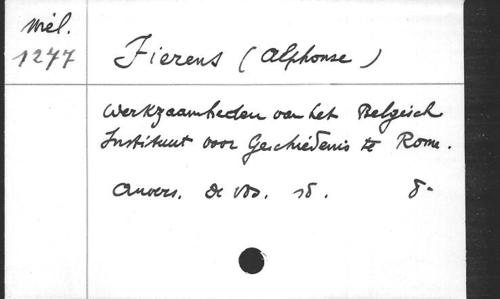 Mél.
1277
Fierens (Alphonse)
Werkzaamheden van het Belgisch
Instituut voor Geschiedenis te Rome.
Anvers. De Vos. sd. 8°